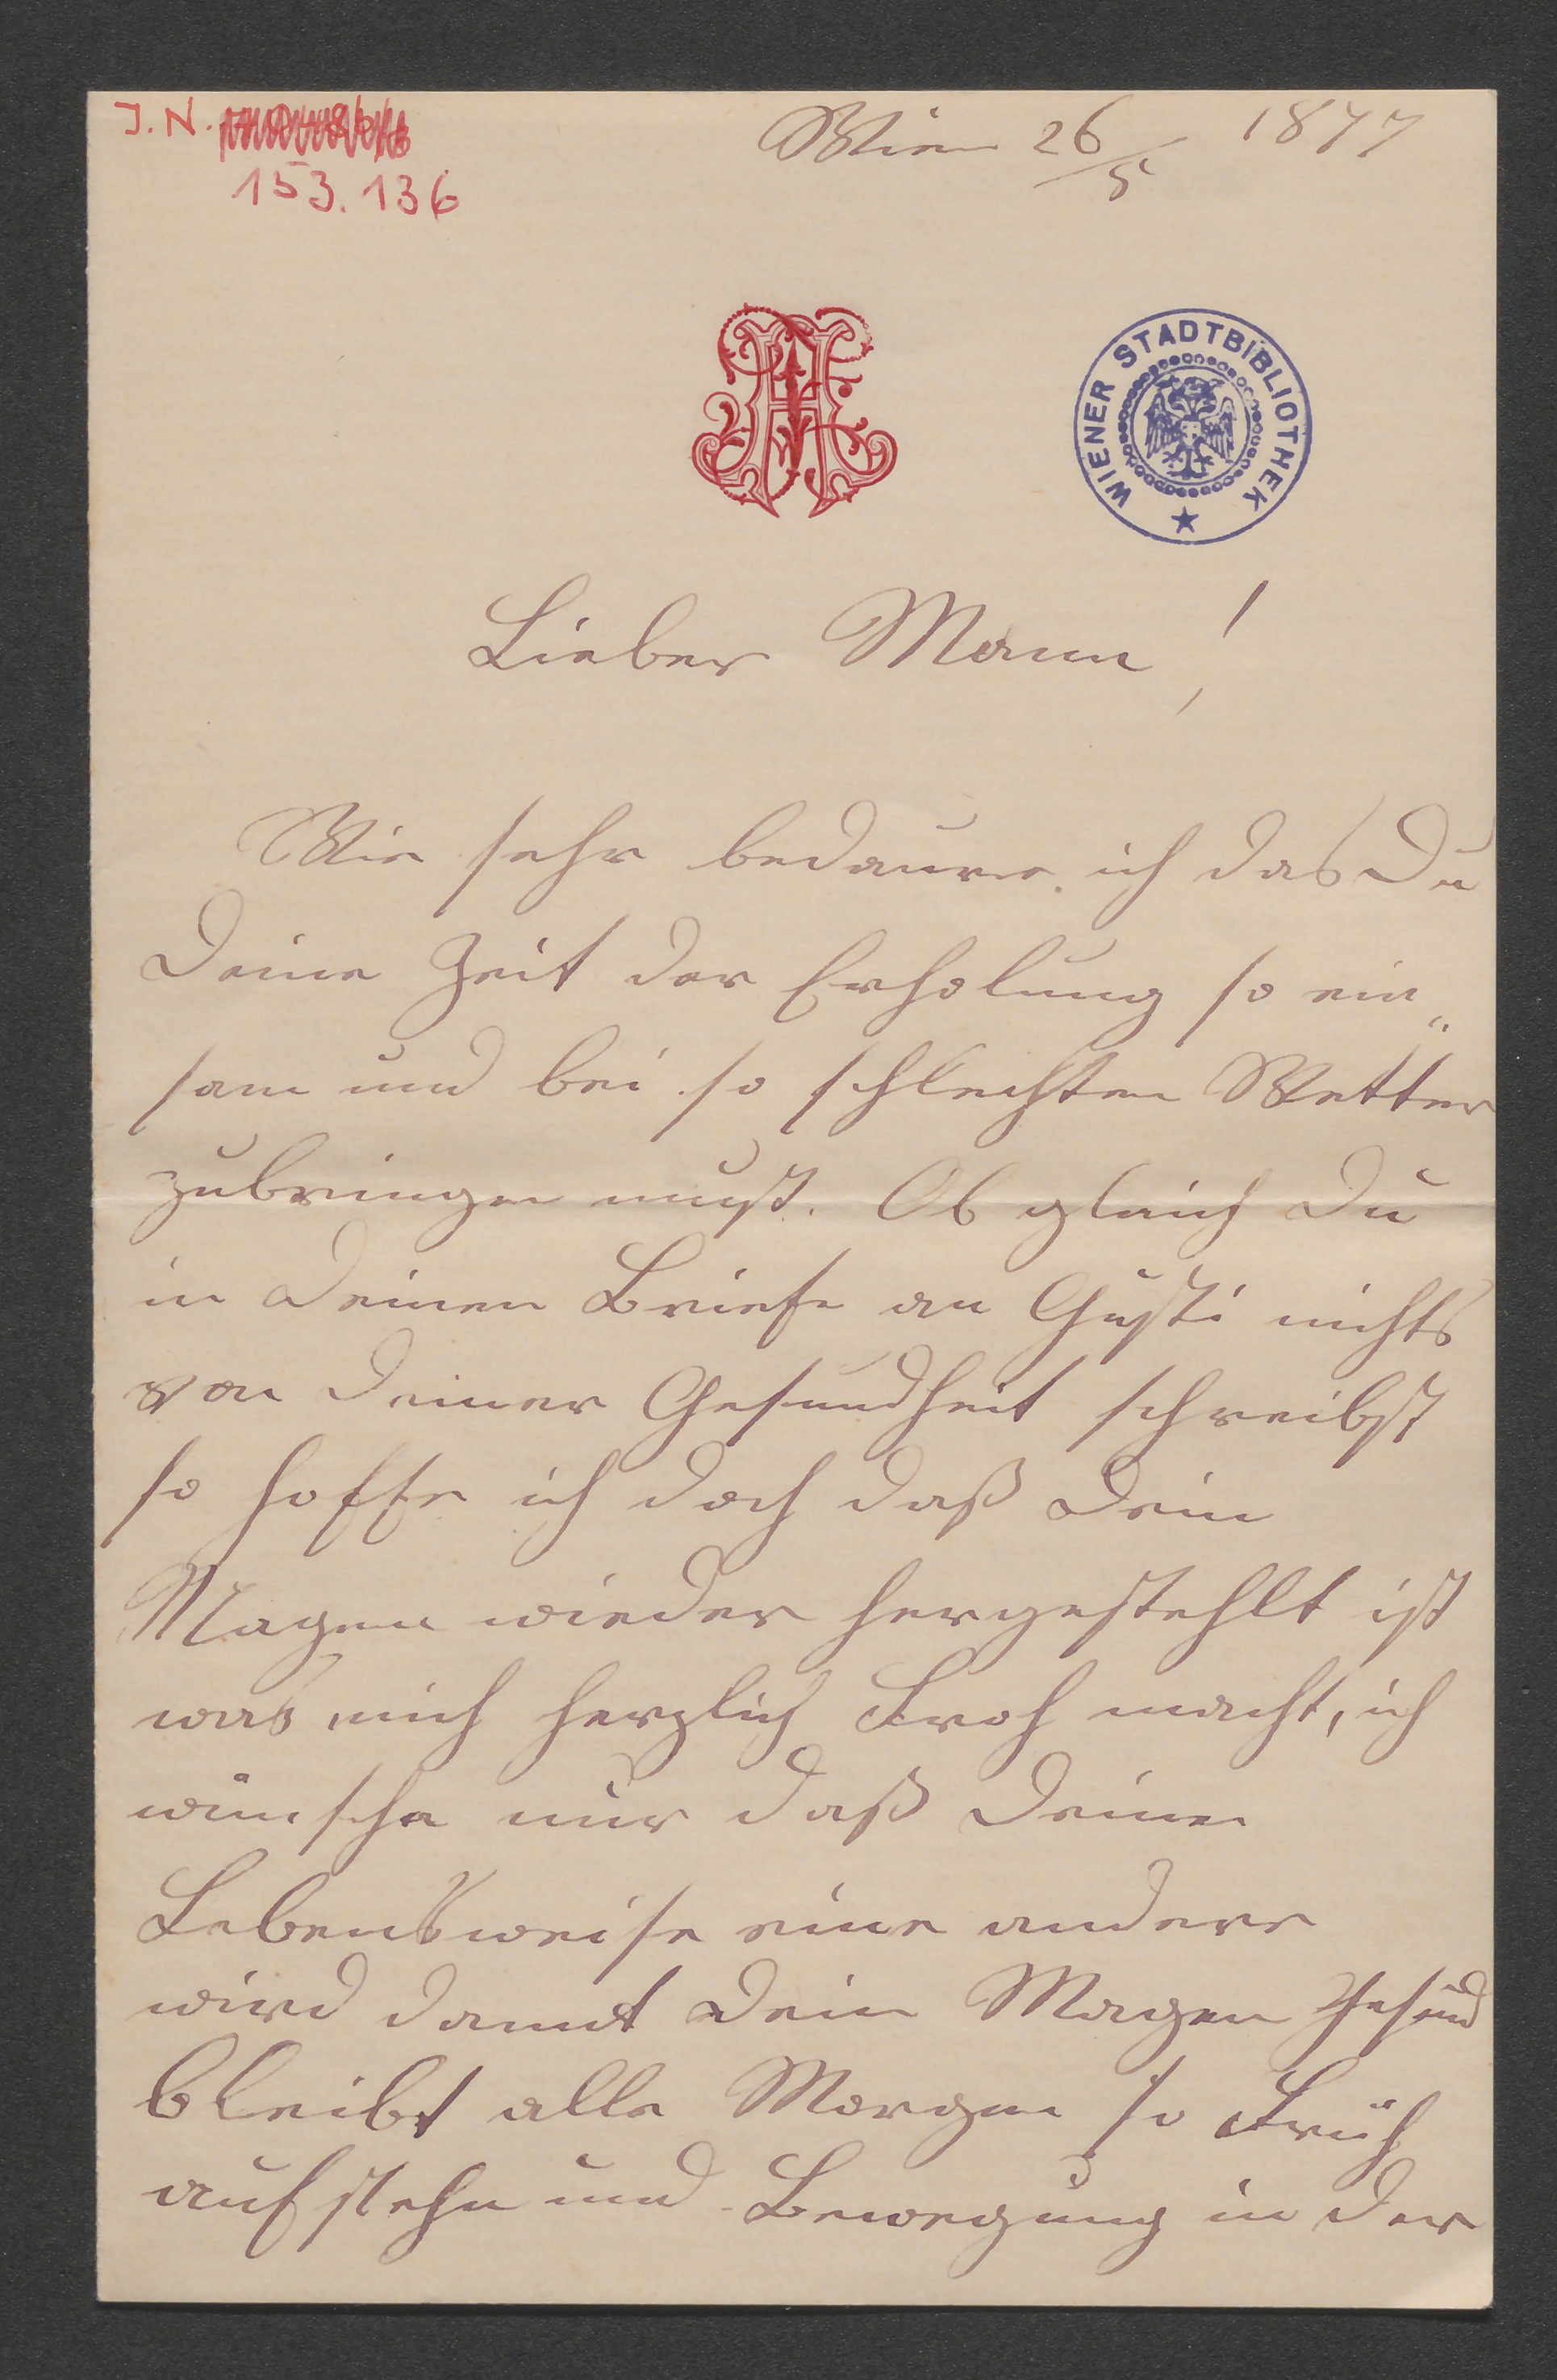 J. N.
153.136
Wien 26/5 1877
WIENER STADTBIBLIOTHEK
Lieber Mann!
Wie sehr bedaure ich das Du
Deine Zeit der Erholung so ein„
sam und bei so schlechten Wetter
zubringen must. Ob gleich Du
in Deinen Briefe an Gusti nichts
von Deiner Gesundheit schreibst
so hoffe ich doch daß Dein
Magen wieder hergestehlt ist
was mich herzlich Froh macht, ich
wünsche nur daß Deine
Lebensweise eine andere
wird damit Dein Magen Gesund
bleibt alle Morgen so Früh
aufstehn und Bewegung in der